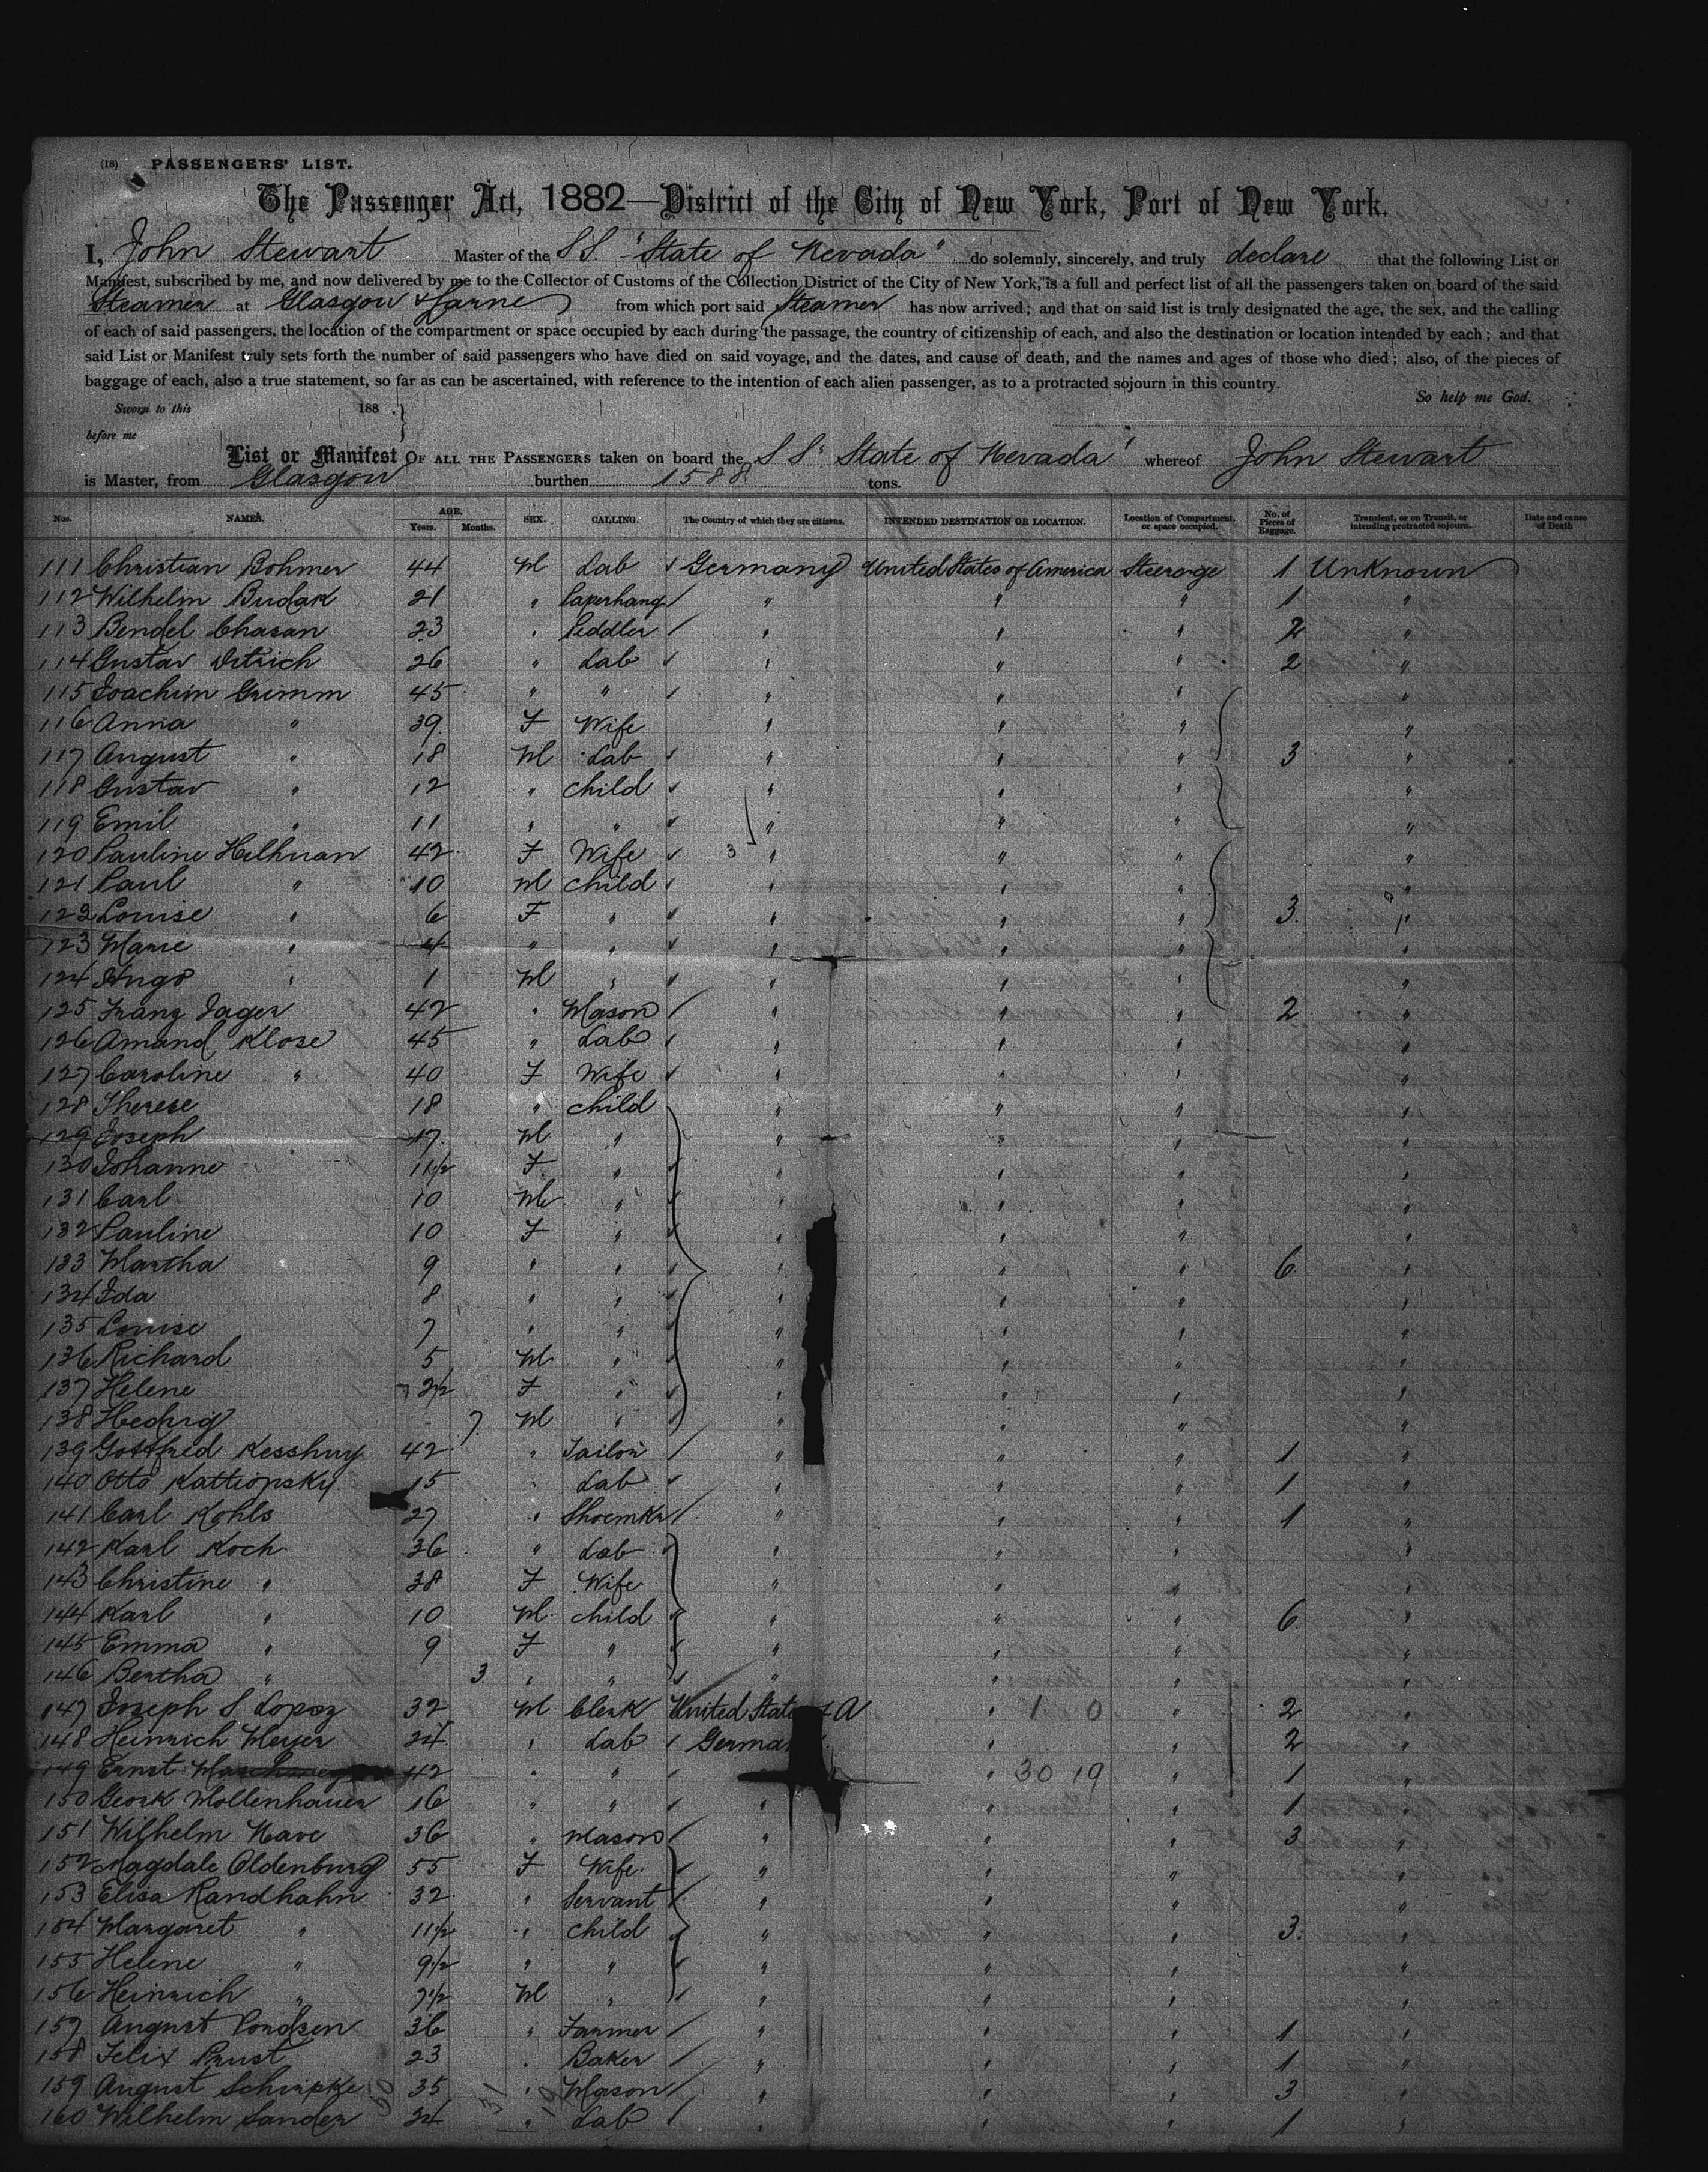 (18) PASSENGERS' LIST.
The Passenger Act, 1882—District of the City of New York, Port of New York.
I, John Stewart Master of the S.S. "State of Nevada" do solemnly, sincerely, and truly declare that the following List or
Manifest, subscribed by me, and now delivered by me to the Collector of Customs of the Collection District of the City of New York, is a full and perfect list of all the passengers taken on board of the said
Steamer at Glasgow & Larne from which port said Steamer has now arrived; and that on said list is truly designated the age, the sex, and the calling
of each of said passengers, the location of the compartment or space occupied by each during the passage, the country of citizenship of each, and also the destination or location intended by each; and that
said List or Manifest truly sets forth the number of said passengers who have died on said voyage, and the dates, and cause of death, and the names and ages of those who died; also, of the pieces of
baggage of each, also a true statement, so far as can be ascertained, with reference to the intention of each alien passenger, as to a protracted sojourn in this country.
So help me God.
Sworn to this 188 .
before me
List or Manifest OF ALL THE PASSENGERS taken on board the S S "State of Nevada" whereof John Stewart
is Master, from Glasgow burthen 1588 tons.
Nos. NAMES. AGE. Years. Months. SEX. CALLING. The Country of which they are citizens. INTENDED DESTINATION OR LOCATION. Location of Compartment, or space occupied. No. of Pieces of Baggage. Transient, or on Transit, or intending protracted sojourn. Date and cause of Death
111 Christian Bohmer 44 M Lab Germany United States of America Steerage 1 Unknown
112 Wilhelm Budak 21 " Paperhang " " " 1 "
113 Bendel Chasan 23 " Peddler " " " 2 "
114 Gustav Ditrich 26 " Lab " " " 2 "
115 Joachim Grimm 45 " " " " " "
116 Anna " 39 F Wife " " " "
117 August " 18 M Lab " " " 3 "
118 Gustav " 12 " child " " " "
119 Emil " 11 " " " " " "
120 Pauline 42 F Wife 3 " " " "
121 Paul " 10 M child " " " "
122 Louise " 6 F " " " " 3 "
123 Marie " 4 " " " " " "
124 Hugo " 1 M " " " " "
125 Franz Jager 42 " Mason " " " 2 "
126 Amand Klose 45 " Lab " " " "
127 Caroline " 40 F Wife " " " "
128 Therese 18 " child " " " "
129 Joseph 17 M " " " " "
130 Johanne 11½ F " " " " "
131 Carl 10 M " " " " "
132 Pauline 10 F " " " " "
133 Martha 9 " " " " " 6 "
134 Ida 8 " " " " " "
135 Louise 7 " " " " " "
136 Richard 5 M " " " " "
137 Helene 2½ F " " " " "
138 Hedwig 7 M " " " " "
139 Gottfred 42 " Tailor " " " 1 "
140 Otto Kattiopsky 15 " Lab " " " 1 "
141 Carl Kohls 27 " Shoemkr " " " 1 "
142 Karl Koch 36 " Lab " " " "
143 Christine " 38 F Wife " " " "
144 Karl " 10 M child " " " 6 "
145 Emma " 9 F " " " " "
146 Bertha " 3 " " " " " "
147 Joseph S Lopoz 32 M Clerk United State A " 1 0 " 2 "
148 Heinrich Meyer 24 " Lab German " " 2 "
149 Ernst 42 " " " 30 19 " 1 "
150 Geork Mollenhauer 16 " " " " " 1 "
151 Wilhelm Nave 36 " Mason " " " 3 "
152 Magdale Oldenburg 55 F Wife " " " "
153 Elisa Randhahn 32 " Servant " " " "
154 Margaret " 11½ " child " " " 3 "
155 Helene " 9½ " " " " " "
156 Heinrich " 7½ M " " " " "
157 August 36 " Farmer " " " 1 "
158 Felix Prust 23 " Baker " " " 1 "
159 August Schirpke 35 " Mason " " " 3 "
160 Wilhelm Sander 24 " Lab " " " 1 "